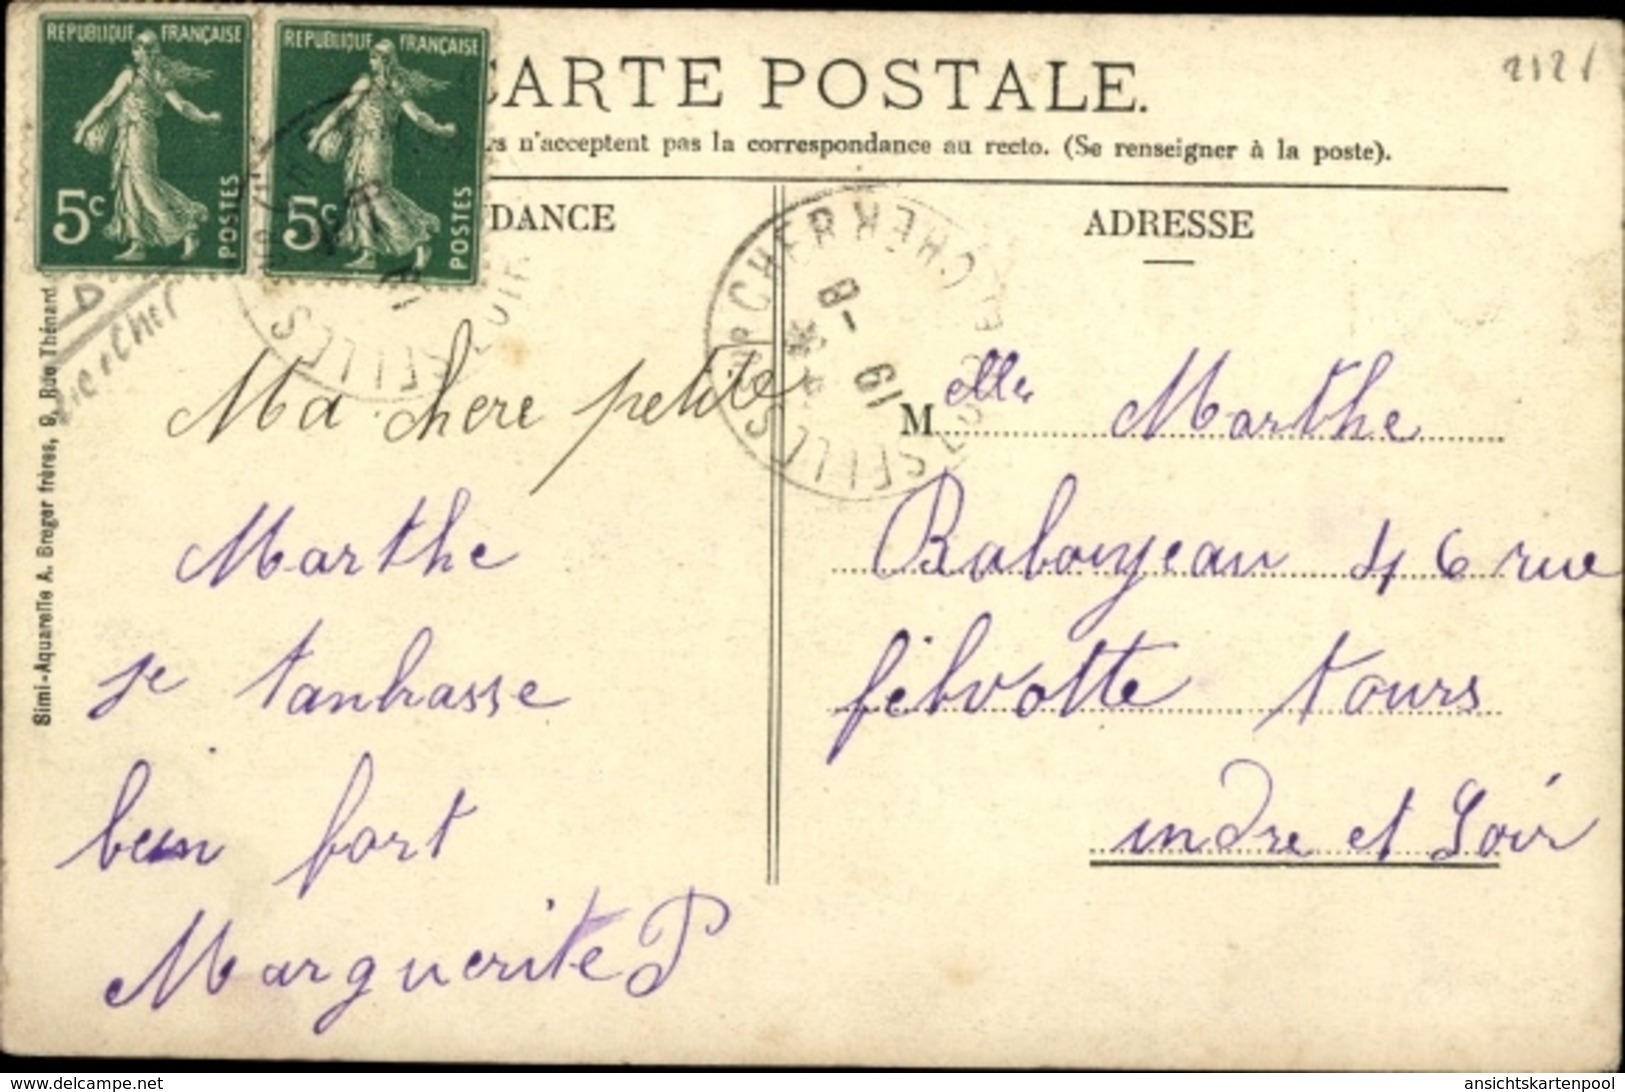 REPUBLIQUE FRANÇAISE
5c POSTES
REPUBLIQUE FRANÇAISE
5c POSTES
CARTE POSTALE.
n'acceptent pas la correspondance au recto. (Se renseigner à la poste).
DANCE
ADRESSE
2121
SELLES SUR CHER
LOIR ET CHER
19 - 8
Simi-Aquarelle A. Breger frères, 9, Rue Thénard
Ma chere petite
Marthe
je tanbrasse
bein fort
Marguerite P
Melle Marthe
Rabouyeau 46 rue
fébvotte tours
indre et Loir
www.delcampe.net
ansichtskartenpool